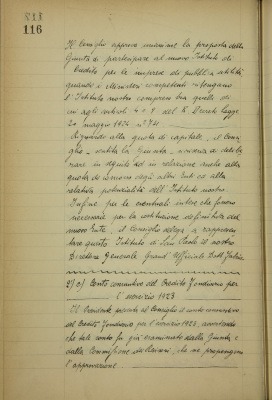 116
Il Consiglio approva unanime la proposta della
Giunta di partecipare al nuovo Istituto di
Credito per le imprese di pubblica utilità
quando i Ministeri competenti ritengano
l'Istituto nostro compreso tra quelli di
cui agli articoli 4 e 7 del R. Decreto Legge
20 maggio 1924 n° 731.
Riguardo alla quota di capitale, il Consi-
glio, sentita la Giunta, si riserva di delibe-
rare in seguito ed in relazione anche alla
quota di concorso degli altri Enti ed alla
relativa potenzialità dell'Istituto nostro.
Infine per le eventuali intese che fossero
necessarie per la costituzione definitiva del
nuovo Ente, il Consiglio delega a rappresen-
tare questo Istituto di San Paolo il nostro
Direttore Generale Grand' Ufficiale Dott.
2°/a) Conto consuntivo del Credito Fondiario per
l'esercizio 1923
Il Presidente presenta al Consiglio il conto consuntivo
del Credito Fondiario per l'esercizio 1923, avvertendo
che tale conto fu già esaminato dalla Giunta e
dalla Commissione dei Revisori, che ne propongono
l'approvazione.